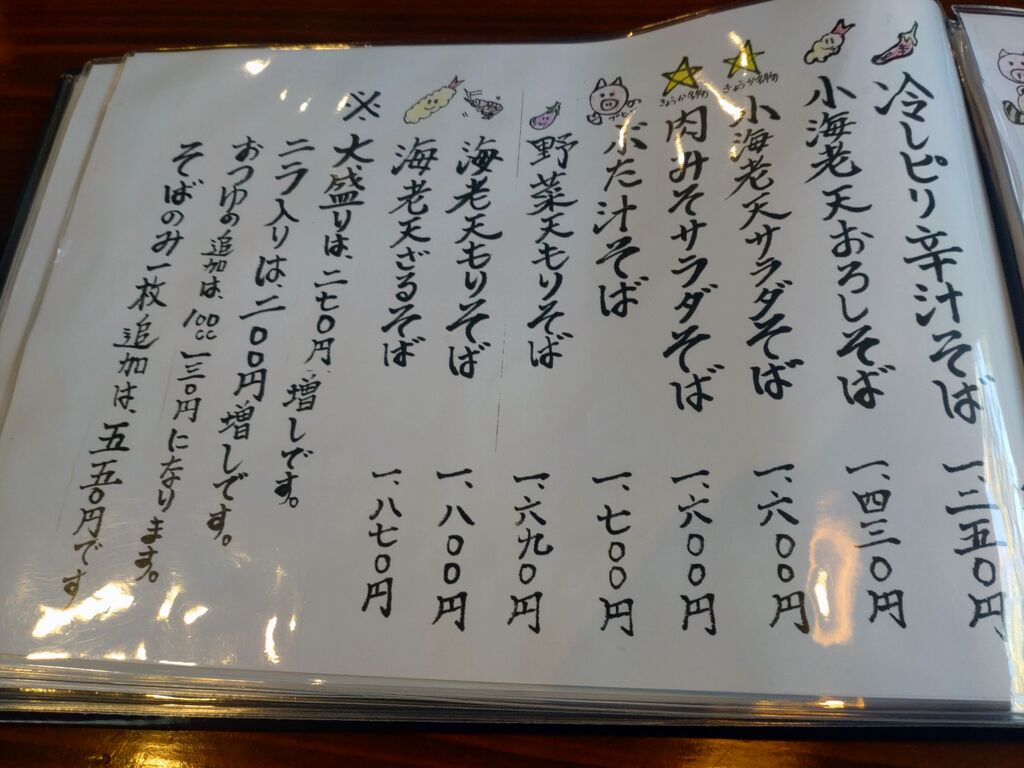 冷しピリ辛汁そば 一、二五〇円
小海老天おろしそば 一、四三〇円
きょうか名物
小海老天サラダそば 一、六〇〇円
きょうか名物
肉みそサラダそば 一、六〇〇円
ぶた汁そば 一、七〇〇円
野菜天もりそば 一、六九〇円
海老天もりそば 一、八〇〇円
海老天ざるそば 一、八七〇円
※大盛りは、二七〇円増しです。
ニラ入りは、二〇〇円増しです。
おつゆの追加は、100cc 一三〇円になります。
そばのみ一枚追加は、五五〇円です